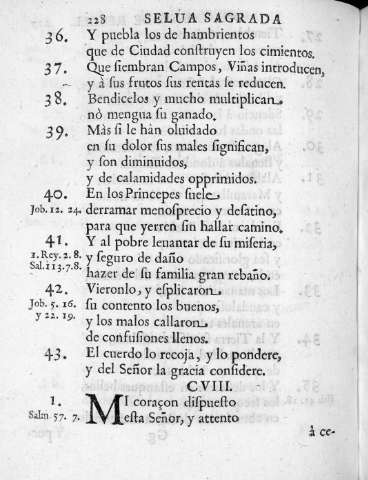 228 SELUA SAGRADA
36. Y puebla los de hambrientos
que de Ciudad conſtruyen los cimientos.
37. Que ſiembran Campos, Viñas introducen,
y à ſus frutos ſus rentas ſe reducen.
38. Bendicelos y mucho multiplican
nò mengua ſu ganado.
39. Màs ſi le hàn oluidado
en ſu dolor ſus males ſignifican,
y ſon diminuidos,
y de calamidades opprimidos.
40. En los Princepes ſuele
Job. 12. 24. derramar menoſprecio y deſatino,
para que yerren ſin hallar camino.
41. Y al pobre leuantar de ſu miſeria,
1. Rey. 2. 8. y ſeguro de daño
Sal. 113. 7. 8. hazer de ſu familia gran rebaño.
42. Vieronlo, y eſplicaron
Job. 5. 16. ſu contento los buenos,
y 22. 19. y los malos callaron
de confuſiones llenos.
43. El cuerdo lo recoja, y lo pondere,
y del Señor la gracia conſidere.
CVIII.
1. MI coraçon diſpueſto
Salm 57. 7. eſta Señor, y attento
à ce-